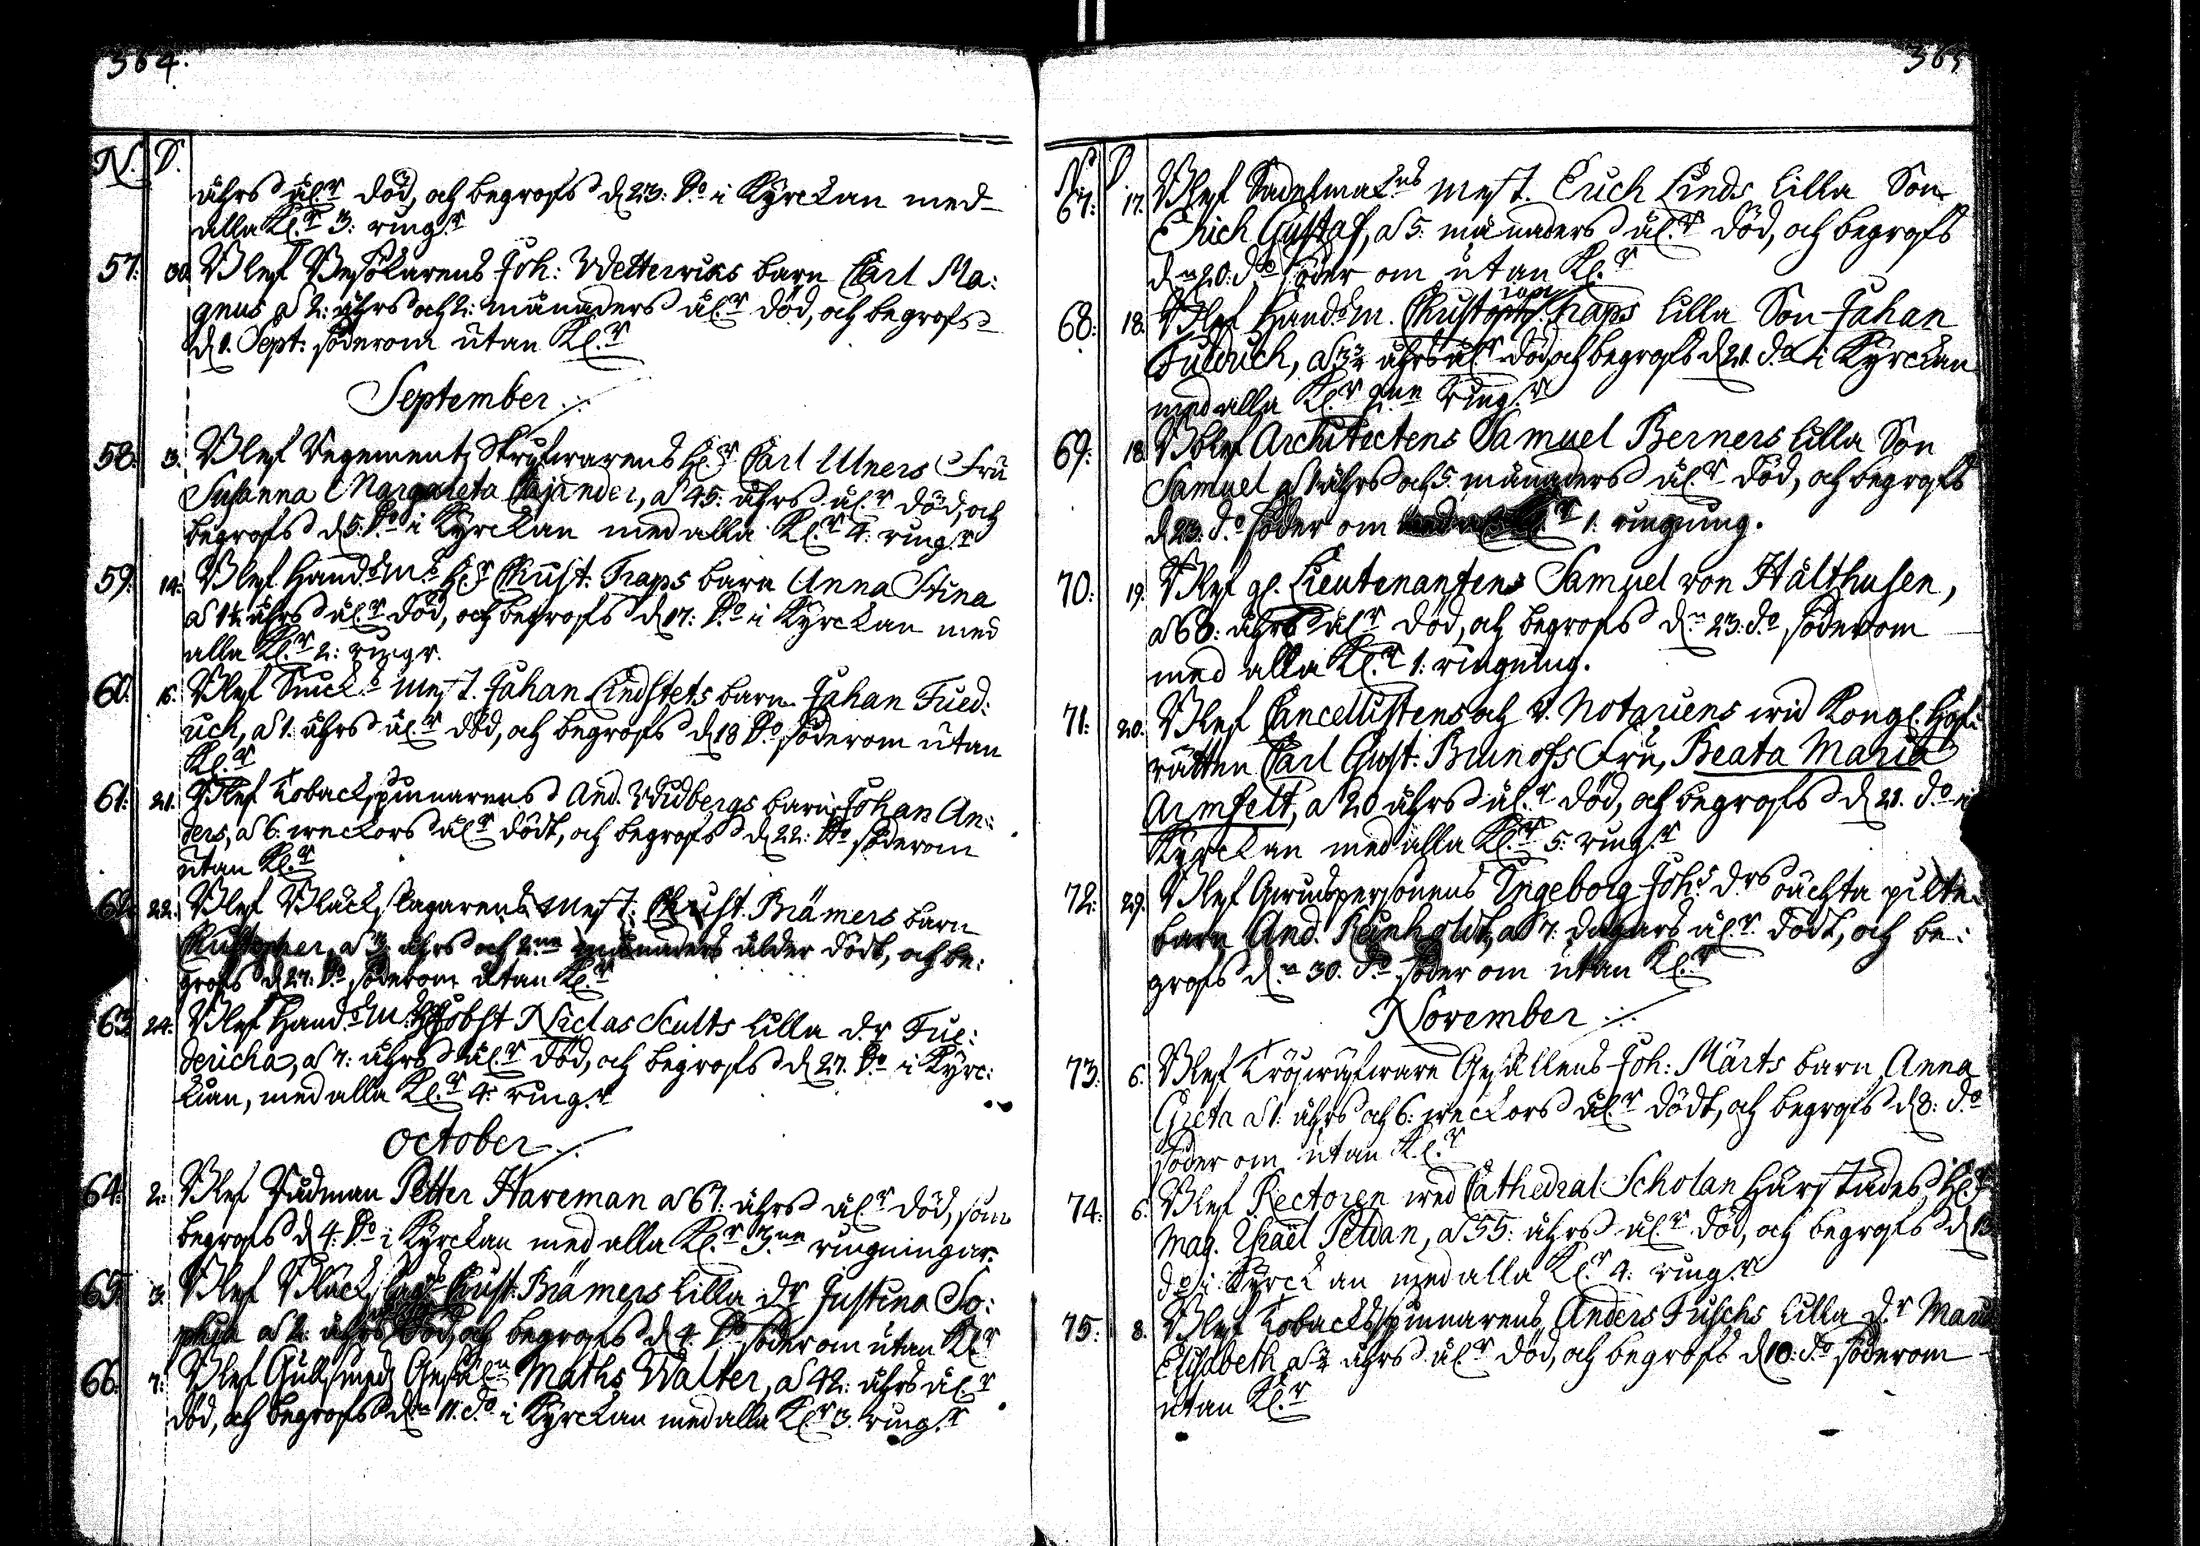 364.
N. D.
åhrs ål.r död, och begrofs d 23: D.o i Kyrckan med
alla Kl.r 3: ring.r
57: 30. Blef Besökarens Joh: Wetterwiks barn Carl Ma:
gnus a 2: åhrs och 2: månaders ål.r död, och begrofs
d 1. Sept: söderom utan Kl.r
September
58: 3. Blef Regements Skrifwarens H.r Carl Ulners Fru
Susanna Margareta Cajander, a 45: åhrs ål.r död, och
begrofs d 5: D.o i Kyrckan med alla Kl.r 4: ring.r
59: 14. Blef Hand.sm.s H.r Christ: Traps barn Anna Stina
a 1¼ åhrs ål.r död, och begrofs d 17: D.o i Kyrckan med
alla Kl.r 2: ringr.
60: 15. Blef Smeds Mest. Johan Lindstets barn Johan Fried:
rich, a 1. åhrs ål.r död, och begrofs d 18 D.o söderom utan
Kl.r
61: 21. Blef Tobackspinnarens And. Widbergs barn Johan An:
ders, a 6. weckors ål.r dödt, och begrofs d 22: D.o söderom
utan Kl.r
62: 22. Blef Bläckslagarens Mest: Christ. Brämers barn
Christopher, a åhrs och 2.ne månaders ålder dödt, och be:
grofs d 27: D.o söderom utan Kl.r
63. 24. Blef Hand.sm. Jobst Niclas Scults lilla dr Frie:
dericha, a 7: åhrs ål.r död, och begrofs d 27. D.o i Kyrc:
kian, med alla Kl.r 4: ring.r
October
64: 2: Blef Rådman Petter Haveman a 67: åhrs ål.r död, som
begrofs d 4: D.o i Kyrckan med alla Kl.r 3.ne ringningar.
65: 3. Blef Bläckslag: Christ. Brämers lilla dr Justina So:
phia a 2: åhrs död, och begrofs d 4. D.o söder om utan Kl.r
66. 7: Blef Gullsmeds Gesäln Maths Walter, a 42: åhrs ål.r
död, och begrofs d.n 11. d.o i Kyrckan med alla Kl.r 3. ring.r
365
N D
67: 17. Blef Sadelmak.ns Mest. Erich Linds lilla Son
Erich Gustaf, a 5: månaders ål.r död, och begrofs
d.n 20: d.o söder om utan Kl.r
68: 18. Blef Hand.sm. Christ Traps lilla Son Johan
Fridrich, a åhrs ål.r död, och begrofs d 21. d.o i Kyrckan
med alla Kl.r 2.ne Ring.r
69: 18. Blef Architectens Samuel Berners lilla Son
Samuel a 1 åhrs och 5 månaders ål.r död, och begrofs
d 23: d.o söder om 1: ringning.
70: 19. Blef gl. Lieutenantens Samuel von Hälthusen,
a 68: åhrs ål.r död, och begrofs d.n 23: d.o söderom
med alla Kl.r 1: ringning.
71: 20. Blef Cancellistens och V. Notariens wid Kongl. Hof:
rätten Carl Gust: Brunofs Fru, Beata Maria
Armfelt, a 20 åhrs ål.r död, och begrofs d 21. d.o i
Kyrckan med alla Kl.r 5: ring.r
72: 29. Blef Qwinspersonens Ingeborg Joh.s drs oächta pilte
barn And. Reinholdt, a 7: dagars ål.r dödt, och be:
grofs d.n 30. d.o söder om utan Kl.r
November
73: 6. Blef Gesällens Joh: Märts barn Anna
Greta a 1: åhrs och 6: weckors ål.r dödt, och begrofs d 8: d.o
söder om utan Kl.r
74: 6. Blef Rectoren wed Cathedral Scholan härstädes, H.r
Mag. Israël Peldan, a 55: åhrs ål.r död, och begrofs d 13
d.o i Kyrckan med alla Kl.r 4: ring.r
75: 8. Blef Tobacksspinnarens Anders Fuschs lilla d.r Maria
Elisabeth a åhrs ål.r död, och begrofs d 10. d.o söderom
utan Kl.r